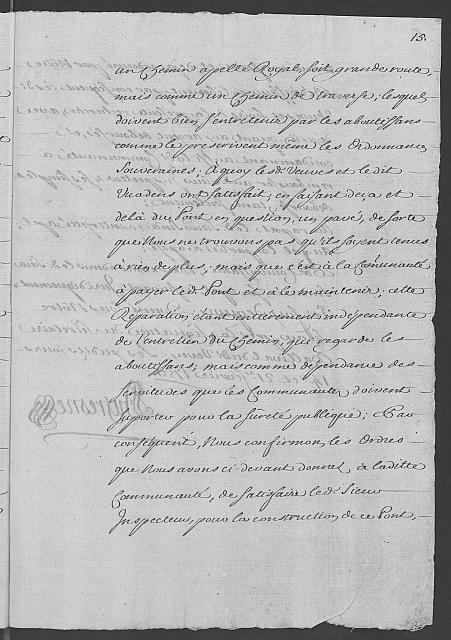 15.
un Chemin apellé Royal, soit grande route,
mais comme un Chemin de traverse; lesquels
doivent bien s'entretenir par les aboutissans
comme le prescrivent même les Ordonnances
Souveraines; A quoy les d.ᵉˢ Veuves et le dit
ont satisfait, en faisant deça et
delà du Pont en question, un pavé, de sorte
que Nous ne trouvons pas qu'ils soyent tenues
à rien de plus, mais que c'est à la Com̃unauté
à payer le d.ᵗ Pont et à le maintenir; cette
Reparation étant entierement indépendante
de l'entretien du Chemin, qui regarde les
aboutissans, mais comme dépendance des
Servitudes que les Communautés doivent
suporter pour la sûreté publique; Par
consequent, Nous confirmons les Ordres
que Nous avons ci-devant donnés, à la ditte
Communauté, de satisfaire le d.ᵗ Sieur
Inspecteur, pour la construction de ce Pont,